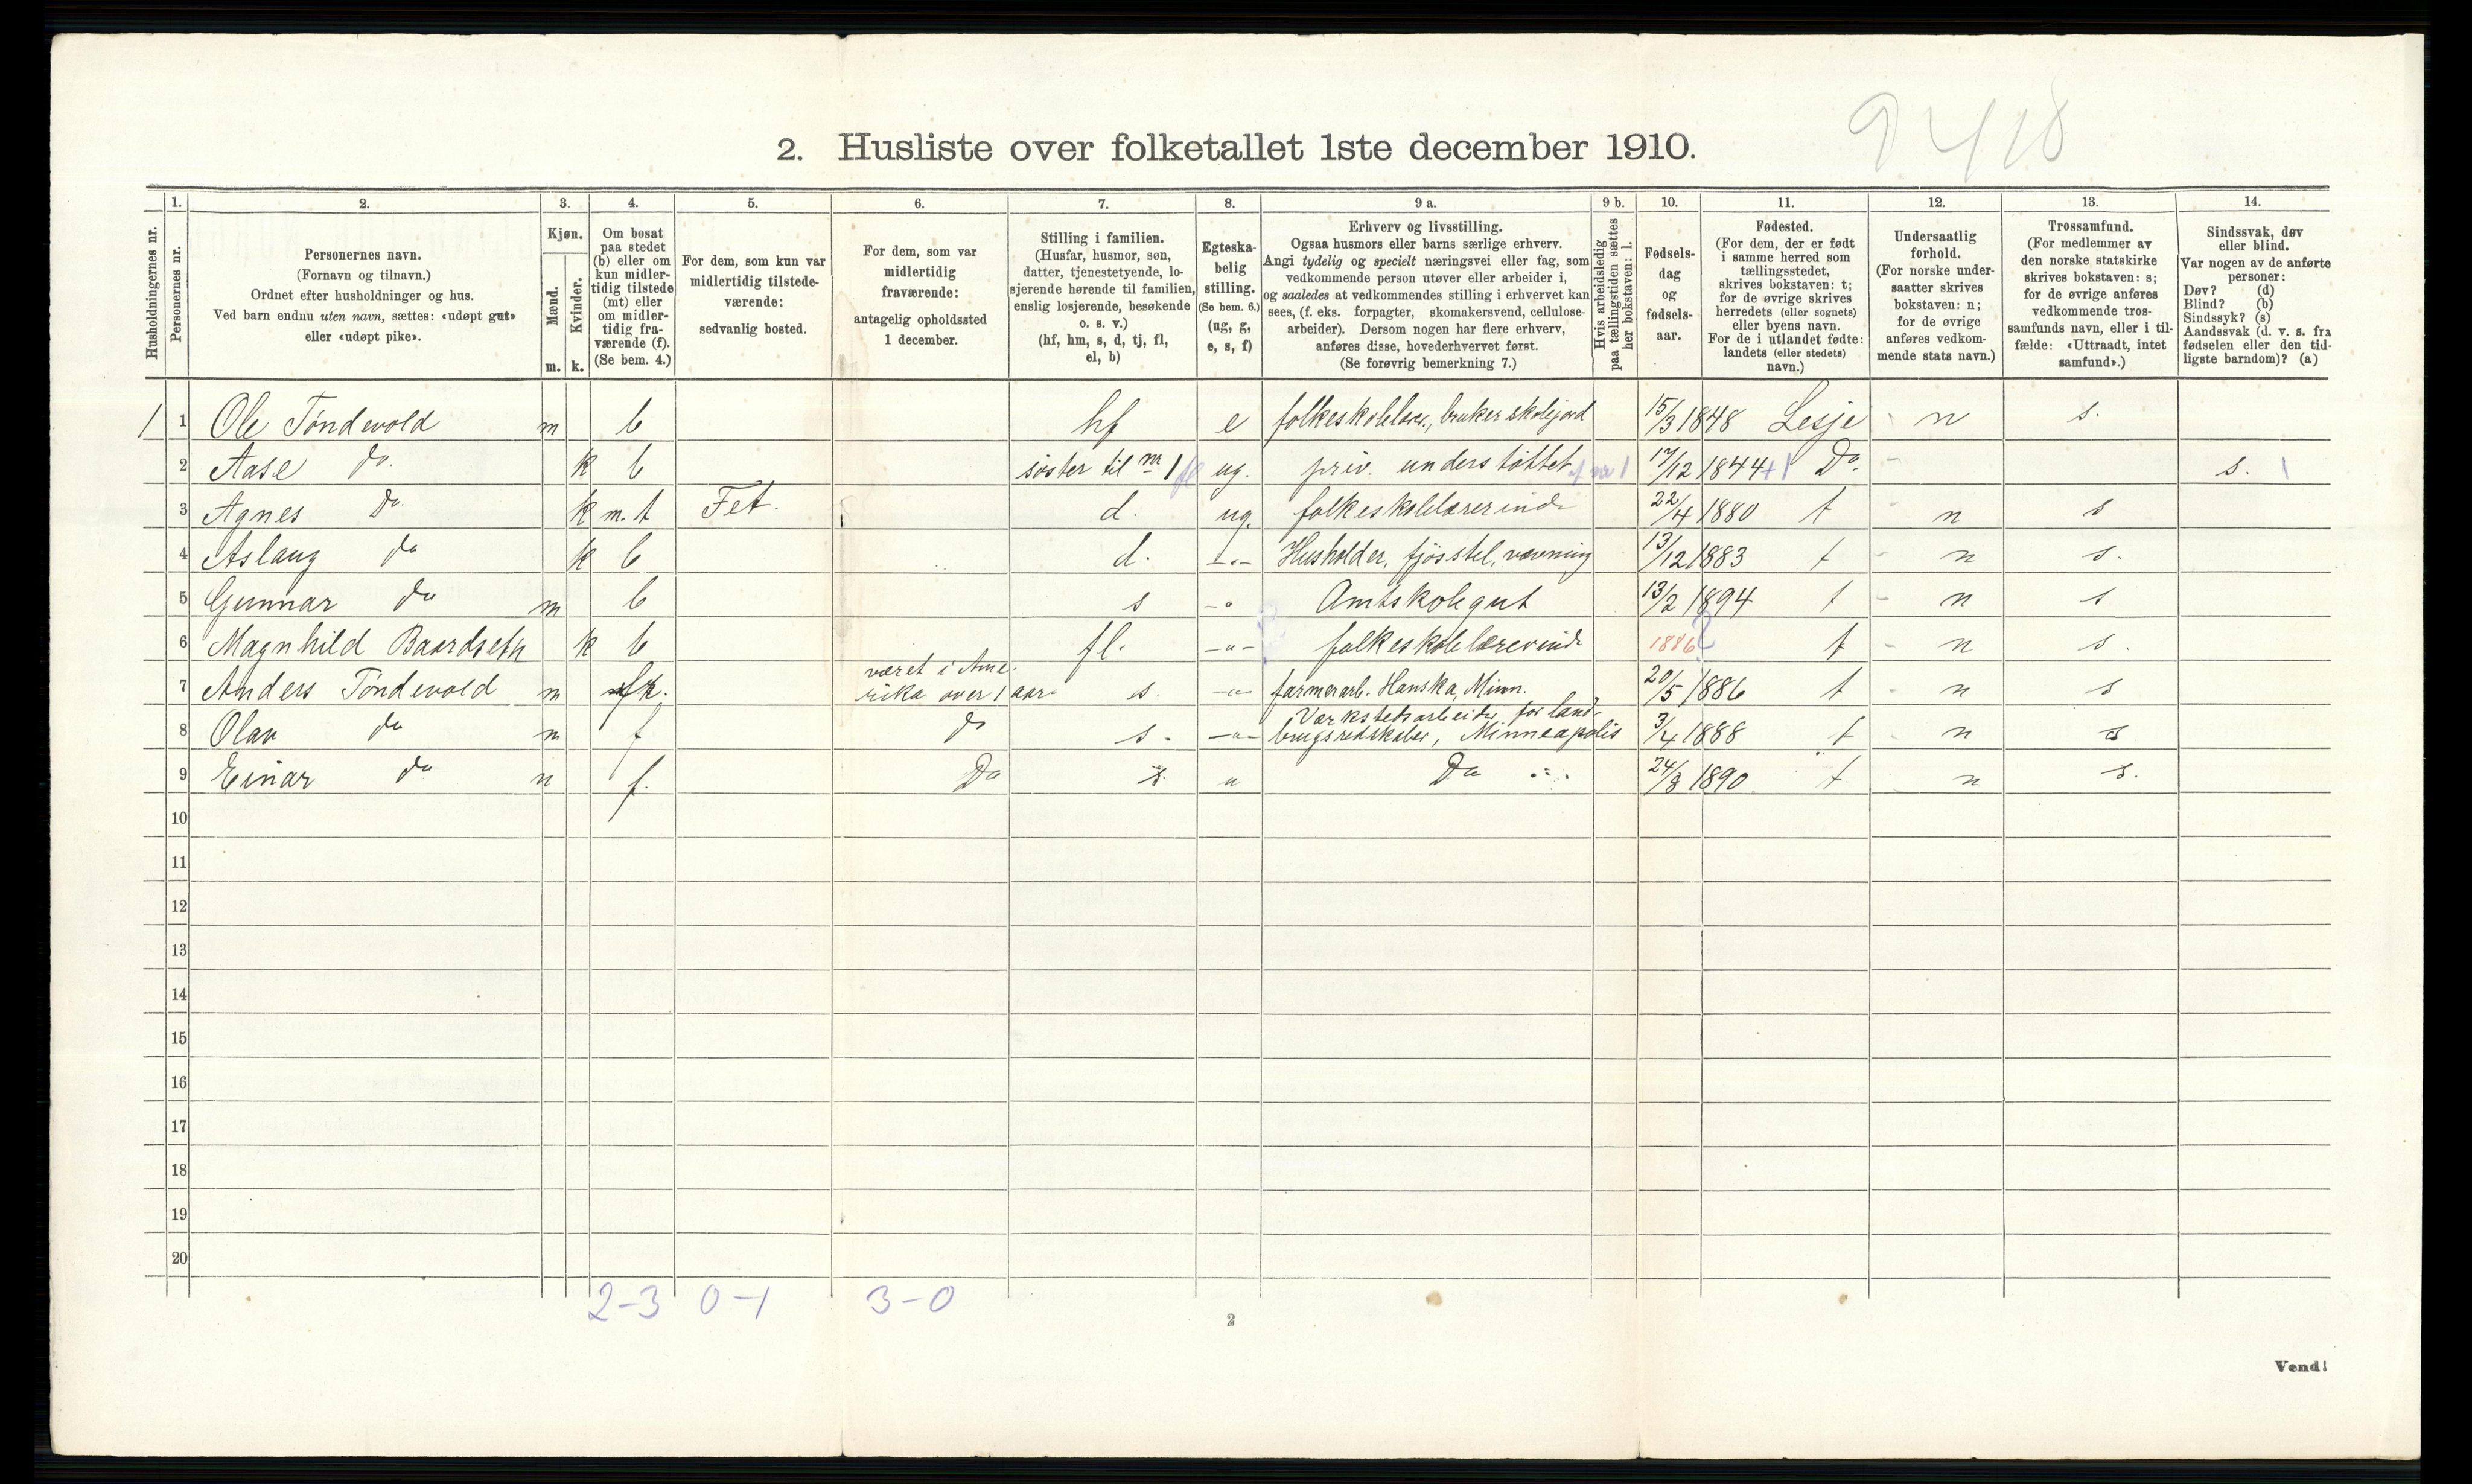 9418
2. Husliste over folketallet 1ste december 1910.
Husholdningernes nr.
1.
Personernes nr.
2.
Personernes navn.
(Fornavn og tilnavn.)
Ordnet efter husholdninger og hus.
Ved barn endnu uten navn, sættes: «udøpt gut»
eller «udøpt pike».
3.
Kjøn.
Mænd.
Kvinder.
m. k.
4.
Om bosat
paa stedet
(b) eller om
kun midler-
tidig tilstede
(mt) eller
om midler-
tidig fra-
værende (f).
(Se bem. 4.)
5.
For dem, som kun var
midlertidig tilstede-
værende:
sedvanlig bosted.
6.
For dem, som var
midlertidig
fraværende:
antagelig opholdssted
1 december.
7.
Stilling i familien.
(Husfar, husmor, søn,
datter, tjenestetyende, lo-
sjerende hørende til familien,
enslig losjerende, besøkende
o. s. v.)
(hf, hm, s, d, tj, fl,
el, b)
8.
Egteska-
belig
stilling.
(Se bem. 6.)
(ug, g,
e, s, f)
9 a.
Erhverv og livsstilling.
Ogsaa husmors eller barns særlige erhverv.
Angi tydelig og specielt næringsvei eller fag, som
vedkommende person utøver eller arbeider i,
og saaledes at vedkommendes stilling i erhvervet kan
sees, (f. eks. forpagter, skomakersvend, cellulose-
arbeider). Dersom nogen har flere erhverv,
anføres disse, hovederhvervet først.
(Se forøvrig bemerkning 7.)
9 b.
Hvis arbeidsledig
paa tællingstiden sættes
her bokstaven: l.
10.
Fødsels-
dag
og
fødsels-
aar.
11.
Fødested.
(For dem, der er født
i samme herred som
tællingsstedet,
skrives bokstaven: t;
for de øvrige skrives
herredets (eller sognets)
eller byens navn.
For de i utlandet fødte:
landets (eller stedets)
navn.)
12.
Undersaatlig
forhold.
(For norske under-
saatter skrives
bokstaven: n;
for de øvrige
anføres vedkom-
mende stats navn.)
13.
Trossamfund.
(For medlemmer av
den norske statskirke
skrives bokstaven: s;
for de øvrige anføres
vedkommende tros-
samfunds navn, eller i til-
fælde: «Uttraadt, intet
samfund».)
14.
Sindssvak, døv
eller blind.
Var nogen av de anførte
personer:
Døv? (d)
Blind? (b)
Sindssyk? (s)
Aandssvak (d. v. s. fra
fødselen eller den tid-
ligste barndom)? (a)
1 1 Ole Töndevold m b hf e folkeskolelærer, bruker skolejord 15/3 1848 Lesje n s.
2 Aase do. k b söster til nr 1 fl ug. priv. understöttet af nr 1 17/12 1844 +1 Do. s. 1
3 Agnes do. k m.t Fet. d. ug. folkeskolelærerinde 22/4 1880 t n s
4 Aslaug do k b d. -"- Husholder, fjösstel, vævning 13/12 1883 t n s.
5 Gunnar do m b s -" Amtskolegut 13/2 1894 t n s
6 Magnhild Baardseth k b fl. -"- folkeskolelærerinde 1886 ? t n s.
7 Anders Töndevold m f. været i Ame-
rika over 1 aar s. -"- farmerarb. Hanska, Minn. 20/5 1886 t n s
8 Olav do m f do s. -"- Værkstedsarbeider for land-
brugsredskaber, Minneapolis 3/4 1888 t n s
9 Einar do m f. Do s. " Do 24/8 1890 t n s.
10
11
12
13
14
15
16
17
18
19
20
2-3 0-1 3-0
2
Vend!